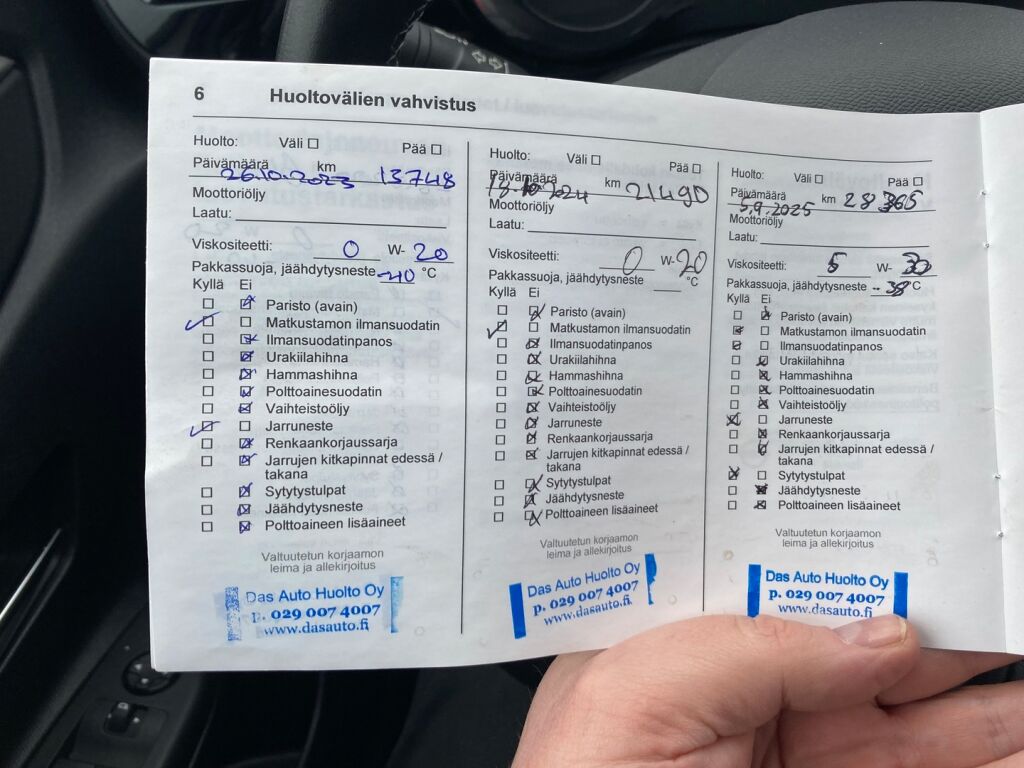 6 Huoltovälien vahvistus
Huolto: Väli ☐ Pää ☐
Päivämäärä km
26.10.2023 13748
Moottoriöljy
Laatu:
Viskositeetti: 0 W- 20
Pakkassuoja, jäähdytysneste -40 °C
Kyllä Ei
Paristo (avain)
Matkustamon ilmansuodatin
Ilmansuodatinpanos
Urakiilahihna
Hammashihna
Polttoainesuodatin
Vaihteistoöljy
Jarruneste
Renkaankorjaussarja
Jarrujen kitkapinnat edessä /
takana
Sytytystulpat
Jäähdytysneste
Polttoaineen lisäaineet
Valtuutetun korjaamon
leima ja allekirjoitus
Das Auto Huolto Oy
p. 029 007 4007
www.dasauto.fi
Huolto: Väli ☐ Pää ☐
Päivämäärä km 21490
2024
Moottoriöljy
Laatu:
Viskositeetti: 0 W-20
Pakkassuoja, jäähdytysneste °C
Kyllä Ei
Paristo (avain)
Matkustamon ilmansuodatin
Ilmansuodatinpanos
Urakiilahihna
Hammashihna
Polttoainesuodatin
Vaihteistoöljy
Jarruneste
Renkaankorjaussarja
Jarrujen kitkapinnat edessä /
takana
Sytytystulpat
Jäähdytysneste
Polttoaineen lisäaineet
Valtuutetun korjaamon
leima ja allekirjoitus
Das Auto Huolto Oy
p. 029 007 4007
www.dasauto.fi
Huolto: Väli ☐ Pää ☐
Päivämäärä km 28365
5.9.2025
Moottoriöljy
Laatu:
Viskositeetti: 5 W- 30
Pakkassuoja, jäähdytysneste -38 °C
Kyllä Ei
Paristo (avain)
Matkustamon ilmansuodatin
Ilmansuodatinpanos
Urakiilahihna
Hammashihna
Polttoainesuodatin
Vaihteistoöljy
Jarruneste
Renkaankorjaussarja
Jarrujen kitkapinnat edessä /
takana
Sytytystulpat
Jäähdytysneste
Polttoaineen lisäaineet
Valtuutetun korjaamon
leima ja allekirjoitus
Das Auto Huolto Oy
p. 029 007 4007
www.dasauto.fi